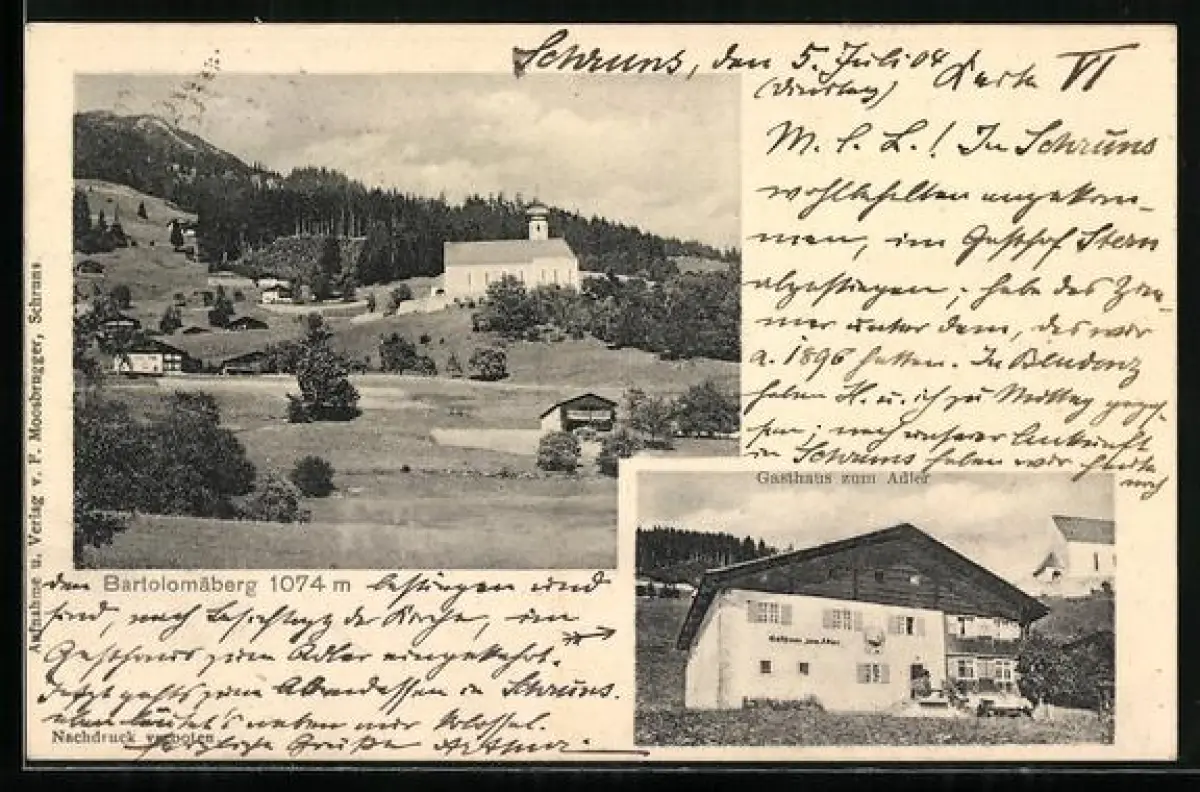 Schruns, den 5. Juli 04
(Dienstag) Karte VI
M. l. L.! In Schruns
wohlbehalten angekom-
men, im Gasthof Stern
abgestiegen; habe das Zim-
mer unter dem, das wir
a. 1896 hatten. In Bludenz
haben H. u. ich zu Mittag geges-
sen; nach unserer Ankunft
in Schruns haben wir heute
noch
Gasthaus zum Adler
Gasthaus zum Adler
den Bartolomäberg 1074 m bestiegen und
sind, nach Besichtigg der Kirche, im
Gasthaus zum Adler eingekehrt.
Jetzt geht's zum Abendessen in Schruns.
eben läutet's neben mir
Nachdruck verboten
Herzliche Grüße Arthur.
Aufnahme u. Verlag v. F. Moosbrugger, Schruns